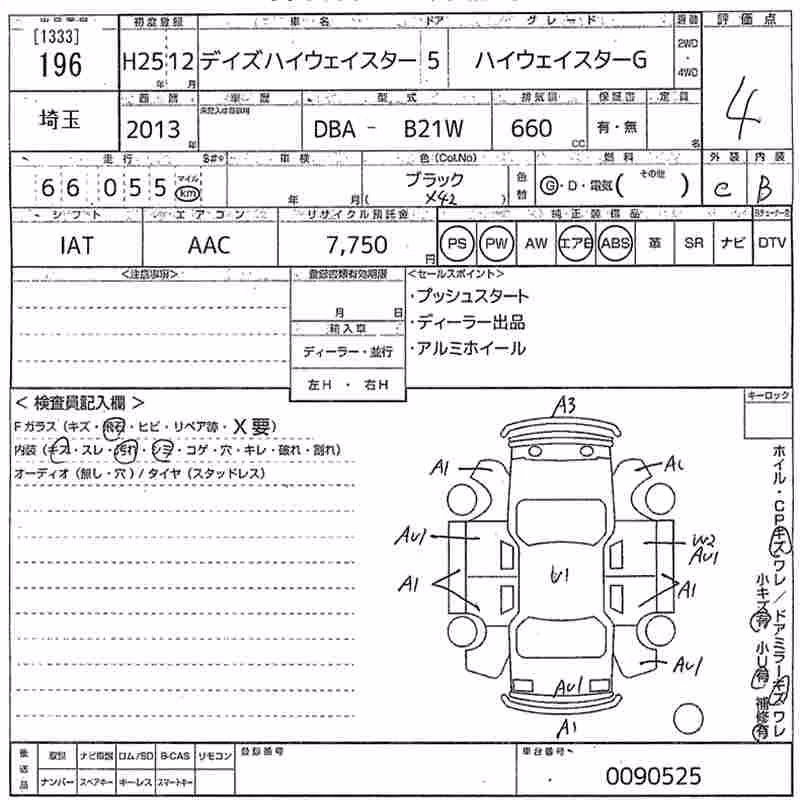 [1333]
196
初度登録 車名 ドア グレード 評価点
H25 12 デイズハイウェイスター 5 ハイウェイスターG 2WD・4WD 4
年 月
埼玉 西暦 車歴 型式 排気量 保証書 定員
2013年 DBA - B21W 660cc 有・無 名
走行 車検 色(Col.No) 燃料 外装 内装
66055 マイル km 年 月 ブラック X42 色替 G・D・電気( その他 ) C B
シフト エアコン リサイクル預託金 純正装備品
IAT AAC 7,750円 PS PW AW エアB ABS 革 SR ナビ DTV
<注意事項> 登録書類有効期限 <セールスポイント>
月 日
・プッシュスタート
・ディーラー出品
・アルミホイール
輸入車
ディーラー・並行
左H・右H
<検査員記入欄>
キーロック
Fガラス(キズ・飛石・ヒビ・リペア跡・X要)
内装(キズ・スレ・汚れ・シミ・コゲ・穴・キレ・破れ・割れ)
オーディオ(無し・穴)/タイヤ(スタッドレス)
A3
A1
AU1 W2
AU1
A1 U1 A1
AU1
AU1
A1
ホイル・CPキズワレ/ドアミラーキズワレ
小キズ有 小U有 補修有
後送品 取説 ナビ取説 ロム/SD B-CAS リモコン 登録番号 車台番号
ナンバー スペアキー キーレス スマートキー 0090525